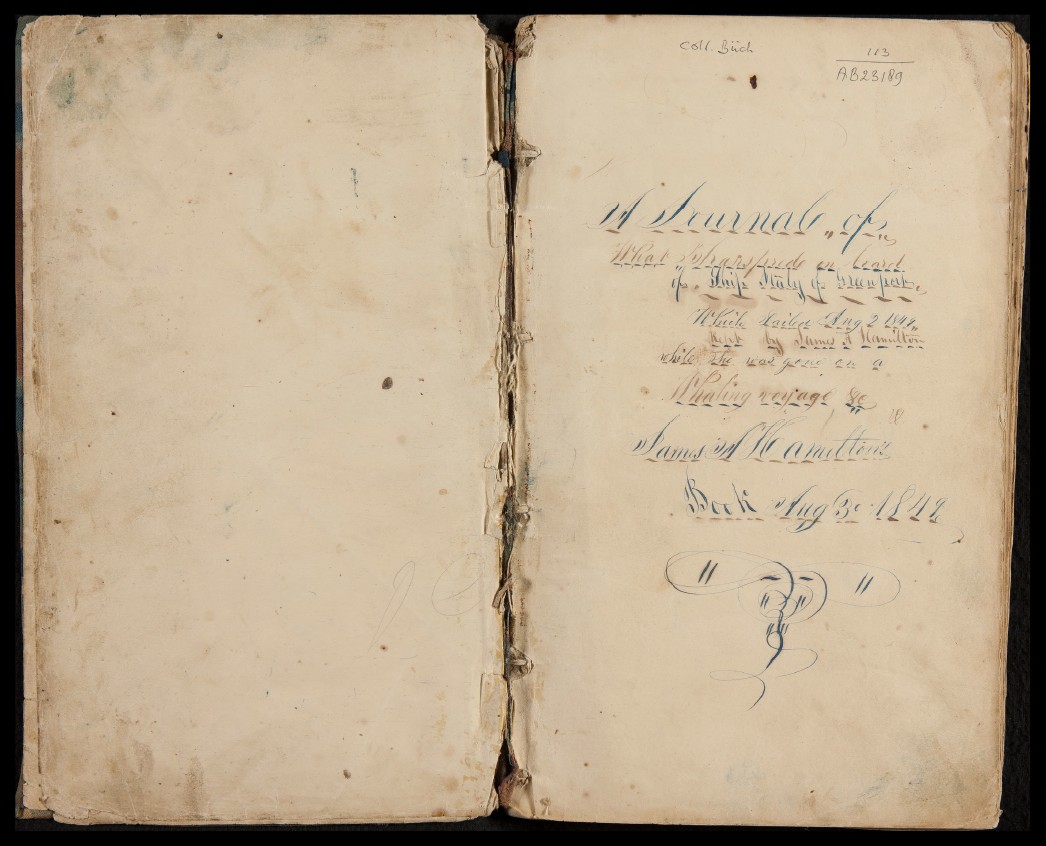 Coll. Büch
113
AB23189
A Journal of
What Transpirede on board
of Ship Italy of Greenport
Which Sailed Aug 2 1849
Kept by James A Hamilton
while She was gone on a
Whaling voyage &c
James A Hamilton's
Book Aug 3 1849